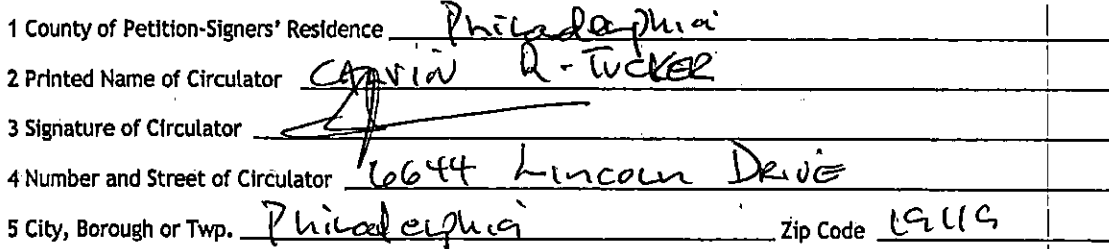 1 County of Petition-Signers' Residence Philadelphia
2 Printed Name of Circulator CALVIN R. TUCKER
3 Signature of Circulator
4 Number and Street of Circulator 6644 Lincoln Drive
5 City, Borough or Twp. Philadelphia Zip Code 19119